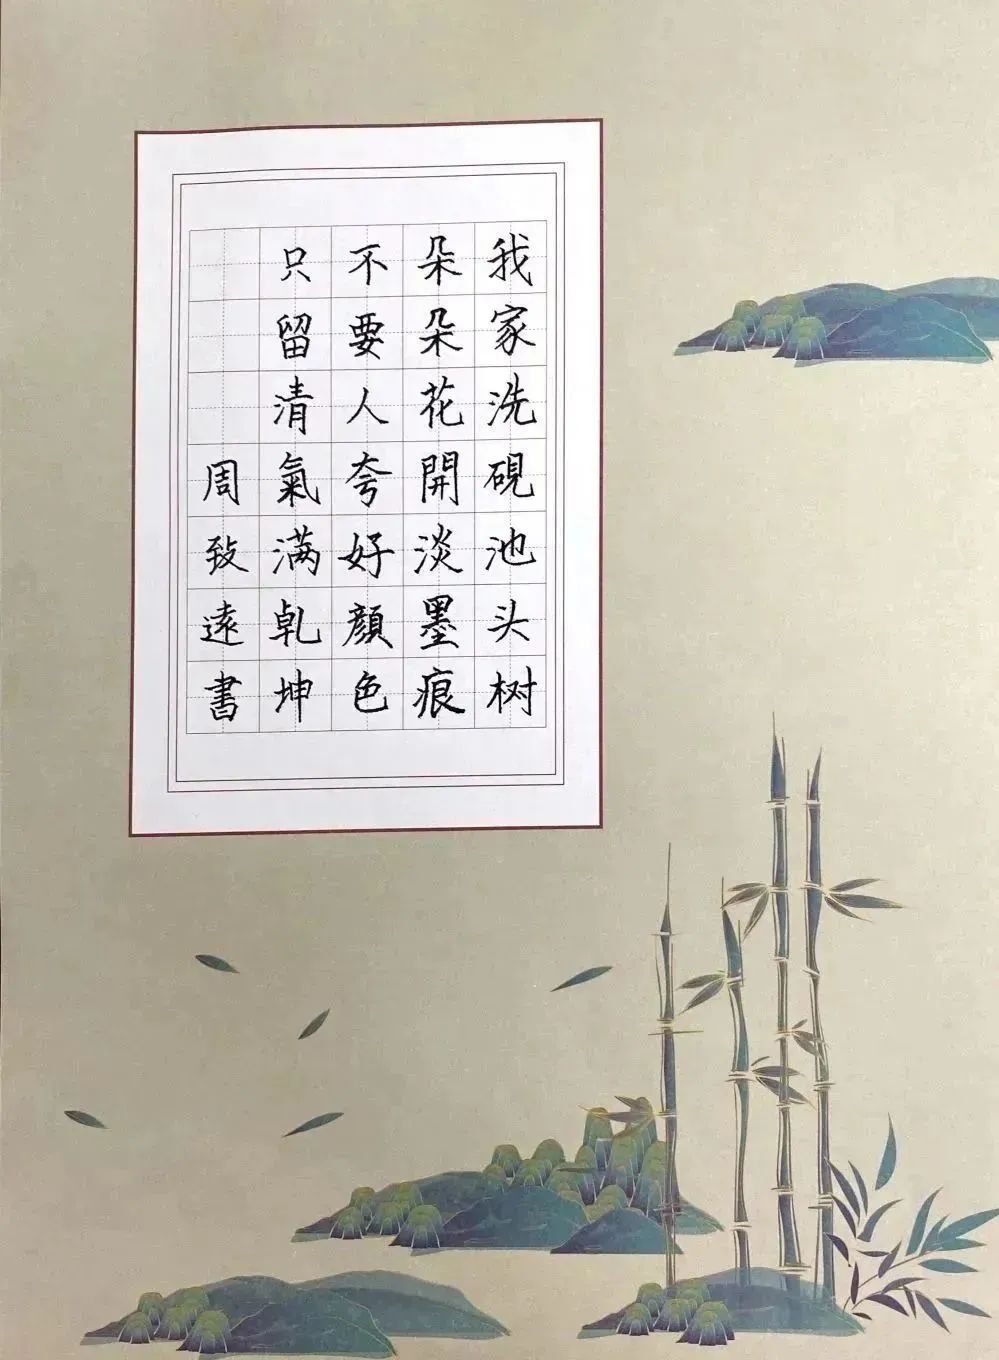 我家洗硯池头树
朵朵花開淡墨痕
不要人夸好顔色
只留清氣满乹坤
周致遠書